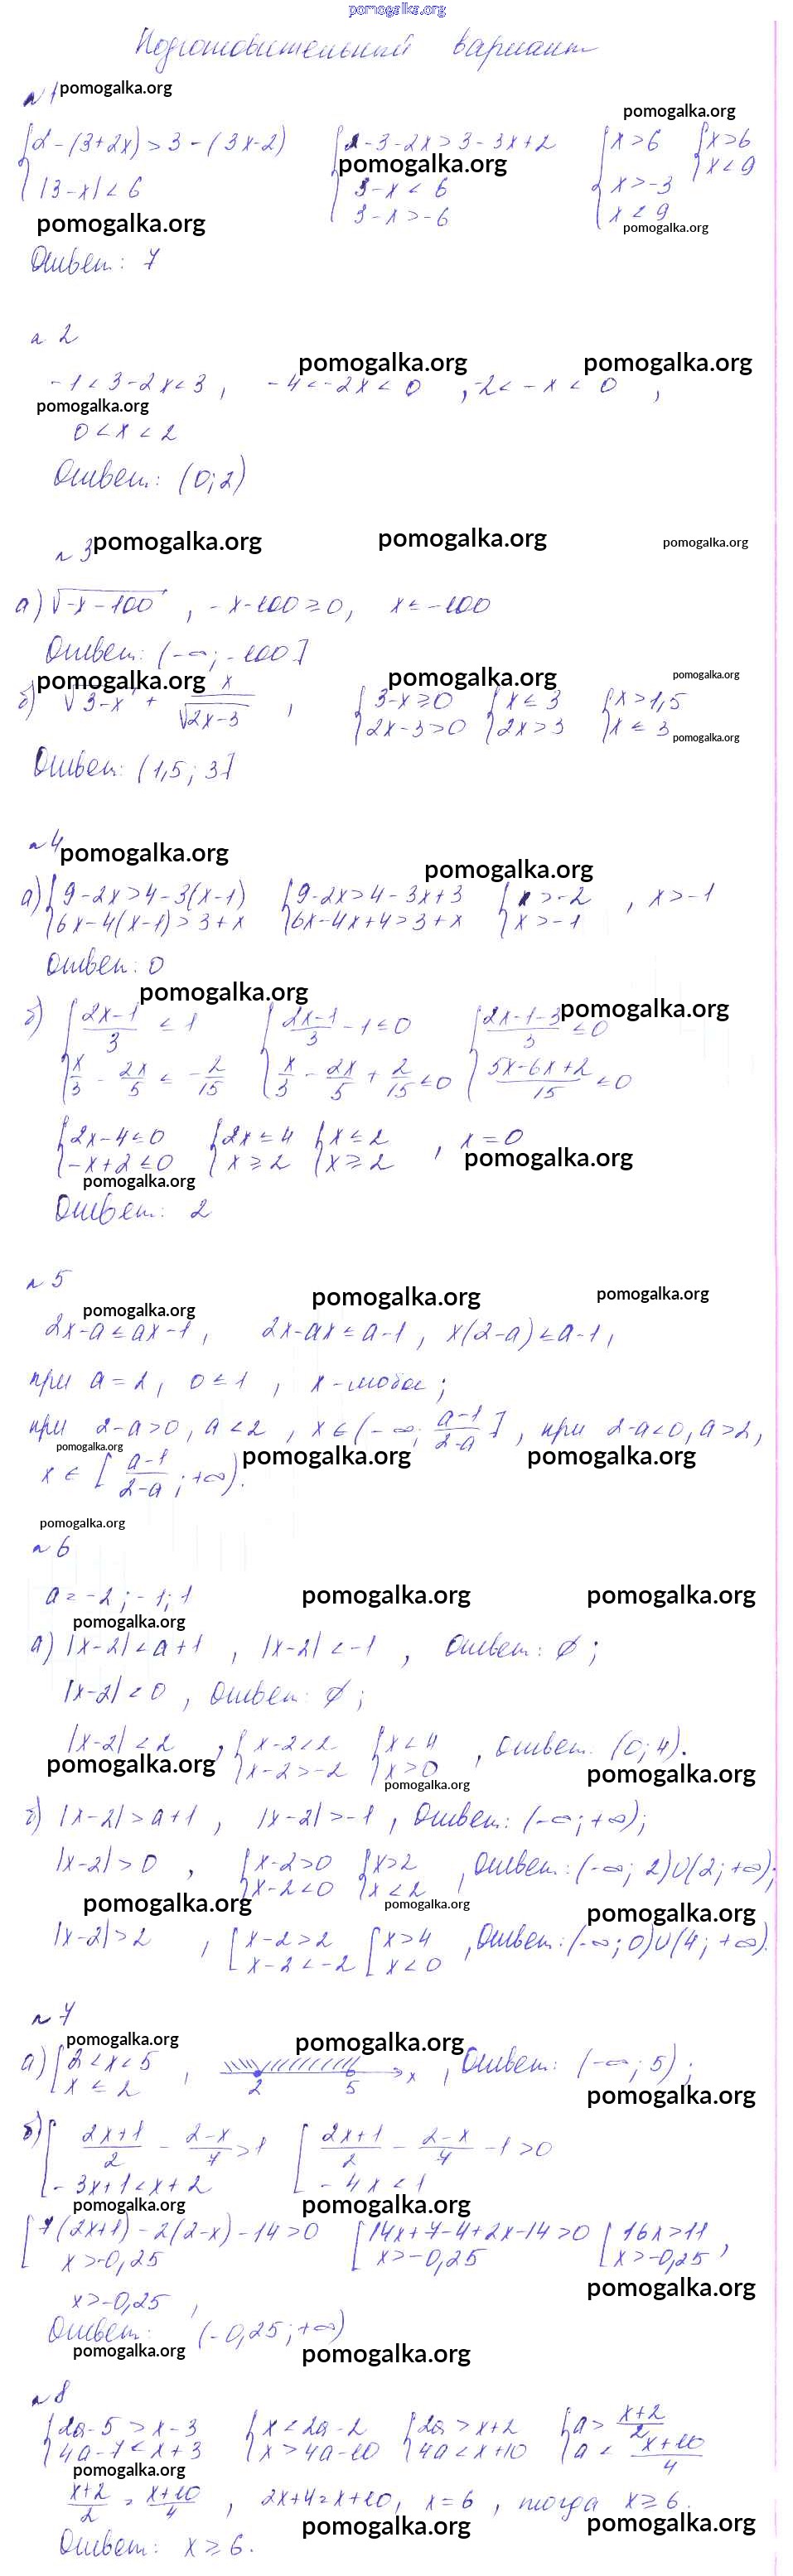 pomogalka.org
Подготовительный вариант
№1 pomogalka.org
{2-(3+2x)>3-(3x-2) {2-3-2x>3-3x+2 {x>6 {x>6
|3-x|<6 3-x<6 x>-3 x<9
3-x>-6 x<9
pomogalka.org pomogalka.org pomogalka.org pomogalka.org
Ответ: 7
№2
pomogalka.org pomogalka.org
-1<3-2x<3, -4<-2x<0, -2<-x<0,
pomogalka.org
0<x<2
Ответ: (0;2)
№3 pomogalka.org pomogalka.org pomogalka.org
а) √-x-100, -x-100≥0, x≤-100
Ответ: (-∞;-100]
pomogalka.org pomogalka.org pomogalka.org
б) √3-x + x/√2x-3, {3-x≥0 {x≤3 {x>1,5
2x-3>0 2x>3 x≤3 pomogalka.org
Ответ: (1,5; 3]
№4 pomogalka.org pomogalka.org
а) {9-2x>4-3(x-1) {9-2x>4-3x+3 {x>-2, x>-1
6x-4(x-1)>3+x 6x-4x+4>3+x x>-1
Ответ: 0
pomogalka.org pomogalka.org
б) {(2x-1)/3≤1 {(2x-1)/3-1≤0 {(2x-1-3)/3≤0
x/3-2x/5≤-2/15 x/3-2x/5+2/15≤0 (5x-6x+2)/15≤0
{2x-4≤0 {2x≤4 {x≤2, x=0
-x+2≤0 x≥2 x≥2 pomogalka.org
pomogalka.org
Ответ: 2
№5
pomogalka.org pomogalka.org pomogalka.org
2x-a≤ax-1, 2x-ax≤a-1, x(2-a)≤a-1,
при a=2, 0≤1, x-любое;
при 2-a>0, a<2, x∈(-∞; (a-1)/(2-a)], при 2-a<0, a>2,
pomogalka.org pomogalka.org pomogalka.org
x∈[(a-1)/(2-a);+∞).
pomogalka.org
№6
a=-2;-1;1 pomogalka.org pomogalka.org
pomogalka.org
а) |x-2|<a+1, |x-2|<-1, Ответ: ∅;
|x-2|<0, Ответ: ∅;
|x-2|<2, {x-2<2 {x<4, Ответ: (0;4).
x-2>-2 x>0
pomogalka.org pomogalka.org pomogalka.org
б) |x-2|>a+1, |x-2|>-1, Ответ: (-∞;+∞);
|x-2|>0, {x-2>0 {x>2, Ответ: (-∞; 2)∪(2;+∞);
x-2<0 x<2
pomogalka.org pomogalka.org pomogalka.org
|x-2|>2, [x-2>2 [x>4, Ответ: (-∞;0)∪(4;+∞).
x-2<-2 x<0
№7
pomogalka.org pomogalka.org
а) [2<x<5, 2 5 x, Ответ: (-∞;5);
x≤2 pomogalka.org
б) [(2x+1)/2-(2-x)/7>1 [(2x+1)/2-(2-x)/7-1>0
-3x+1<x+2 -4x<1
pomogalka.org pomogalka.org
[7(2x+1)-2(2-x)-14>0 [14x+7-4+2x-14>0 [16x>11,
x>-0,25 x>-0,25 x>-0,25
pomogalka.org
x>-0,25,
Ответ: (-0,25;+∞)
pomogalka.org pomogalka.org
№8
{2a-5>x-3 {x<2a-2 {2a>x+2 {a>(x+2)/2
4a-7<x+3 x>4a-10 4a<x+10 a<(x+10)/4
pomogalka.org
(x+2)/2=(x+10)/4, 2x+4=x+10, x=6, тогда x≥6.
pomogalka.org pomogalka.org
Ответ: x≥6.